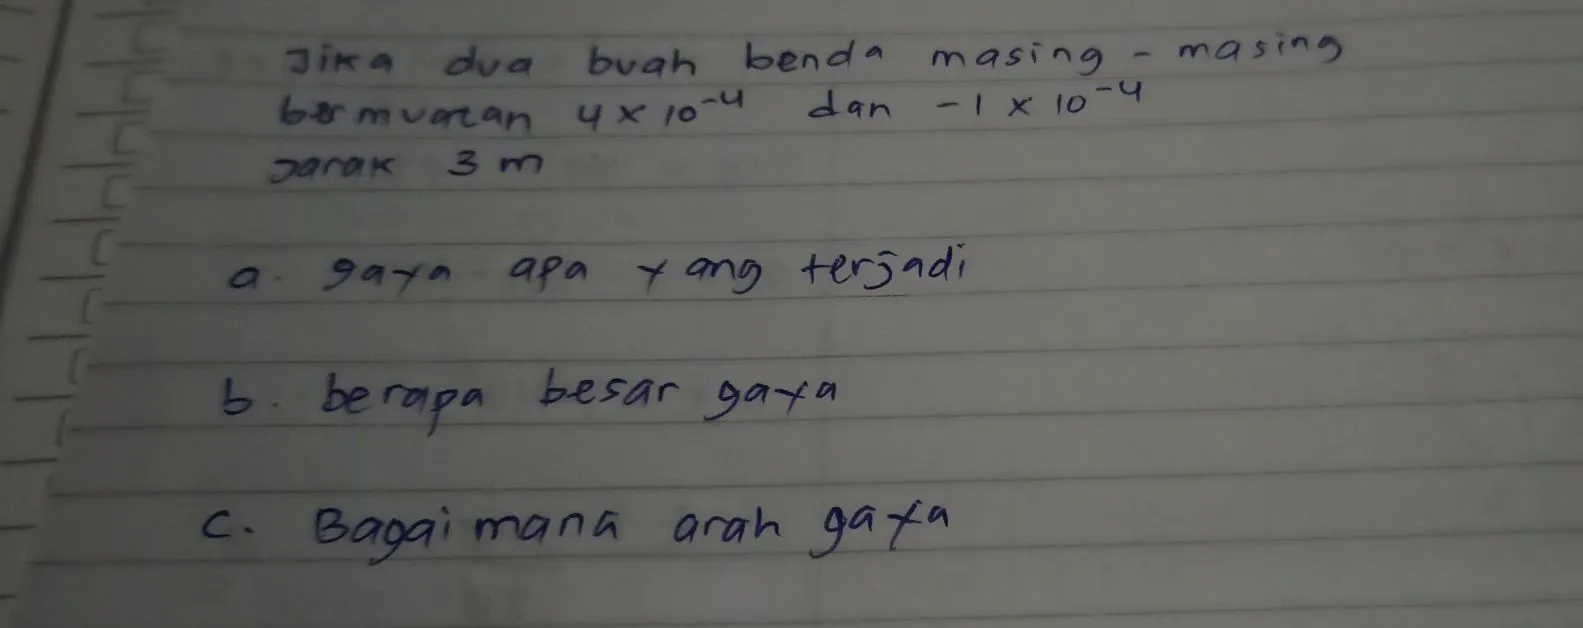 Jika dua buah benda masing - masing
bermuatan 4 x 10⁻⁴ dan -1 x 10⁻⁴
Jarak 3 m
a. gaya apa yang terjadi
b. berapa besar gaya
c. Bagaimana arah gaya